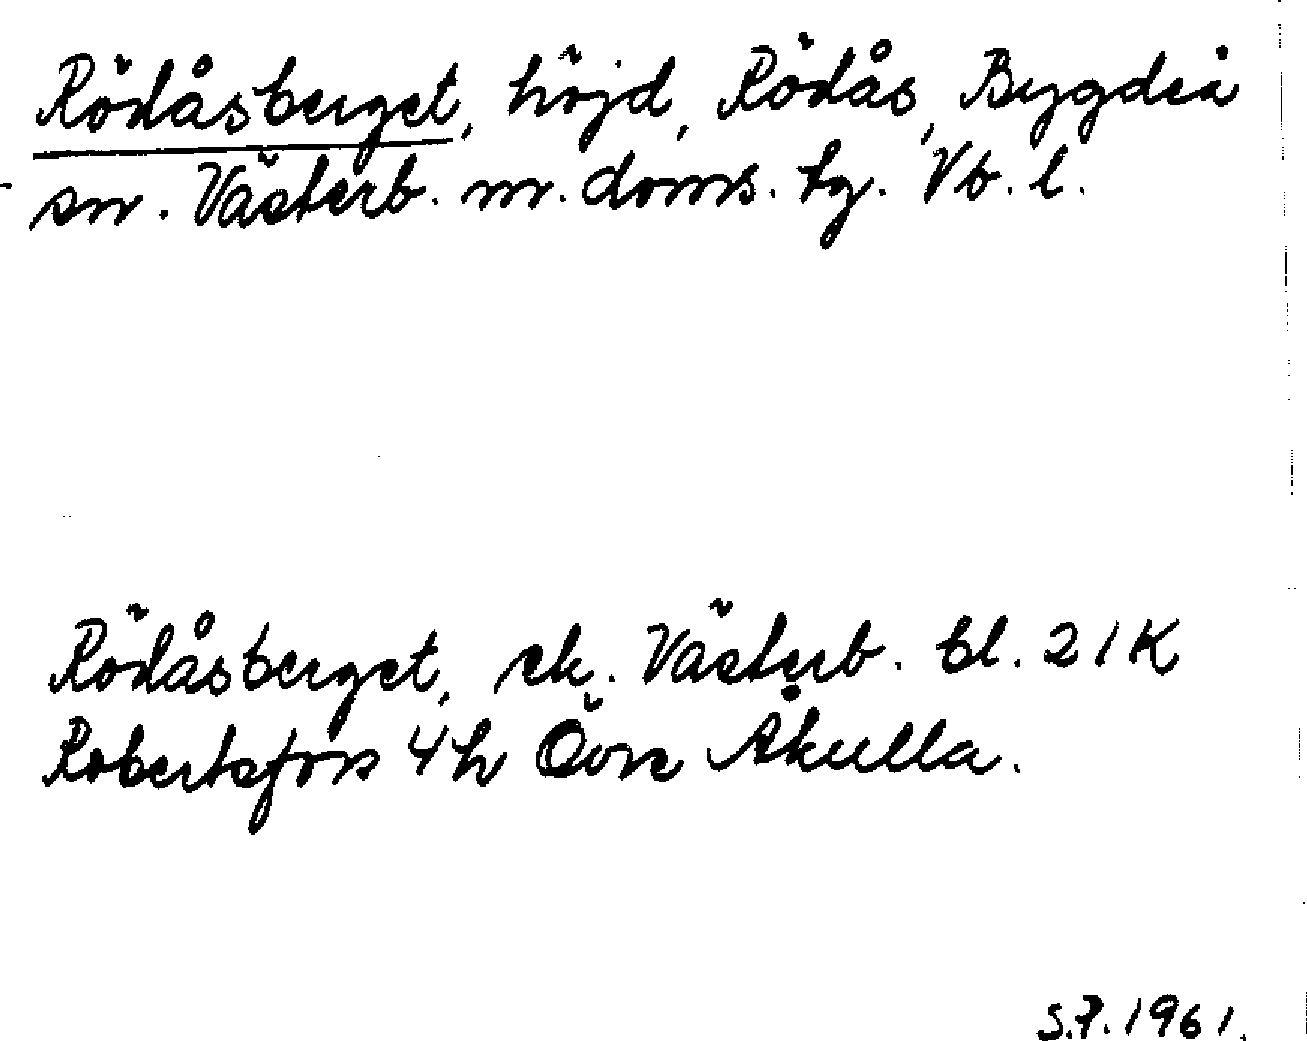 Rödåsberget, höjd, Rödås, Bygdeå
sn. Västerb. m. doms. tg. Vb. l.
Rödåsberget, ek. Västerb. bl. 21K
Robertsfors 4h Övre Åkulla.
S.P. 1961.